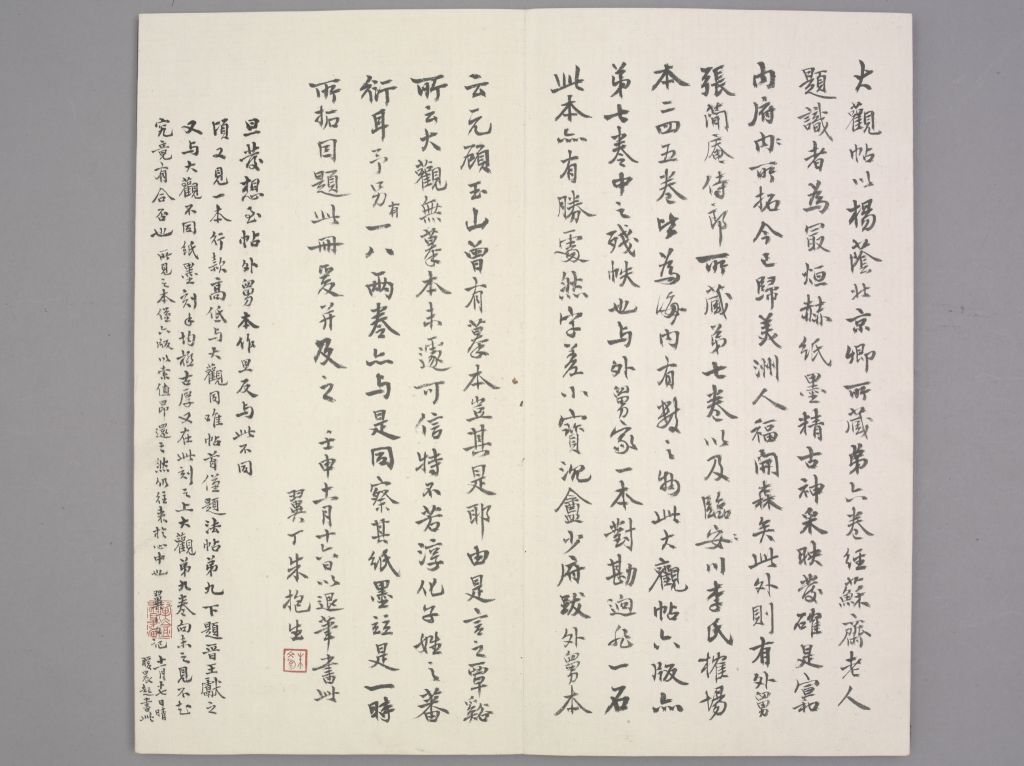 大觀帖以楊蔭北京卿所藏第六卷經蘇齋老人
題識者為冣烜赫紙墨精古神采映發確是宣和
內府內所拓今已歸美洲人福開森矣此外則有外舅
張蕳庵侍郎所藏第七卷以及臨川李氏榷場
本二四五卷皆為海內有數之物此大觀帖六版亦
第七卷中之殘帙也与外舅家一本對勘迥非一石
此本亦有勝處然字差小寶沈盦少府跋外舅本
云元顧玉山曾有摹本豈其是耶由是言之覃谿
所云大觀無摹本未遽可信特不若淳化子姓之蕃
衍耳予另有一八兩卷亦与是同察其紙墨竝是一時
所拓因題此冊爰并及之 壬申十一月十六日以退筆書此
翼丁朱抱生
旦發想至帖外舅本作旦反与此不同
頃又見一本行款高低与大觀同唯帖首僅題法帖第九下題晉王獻之
又与大觀不同紙墨刻手均極古厚又在此刻之上大觀第九卷向未之見不知
究竟有合否也 所見之本僅六版以索值昂還之然仍往來於心中也
翼 記 十一月十七日晴
暖晨起書此